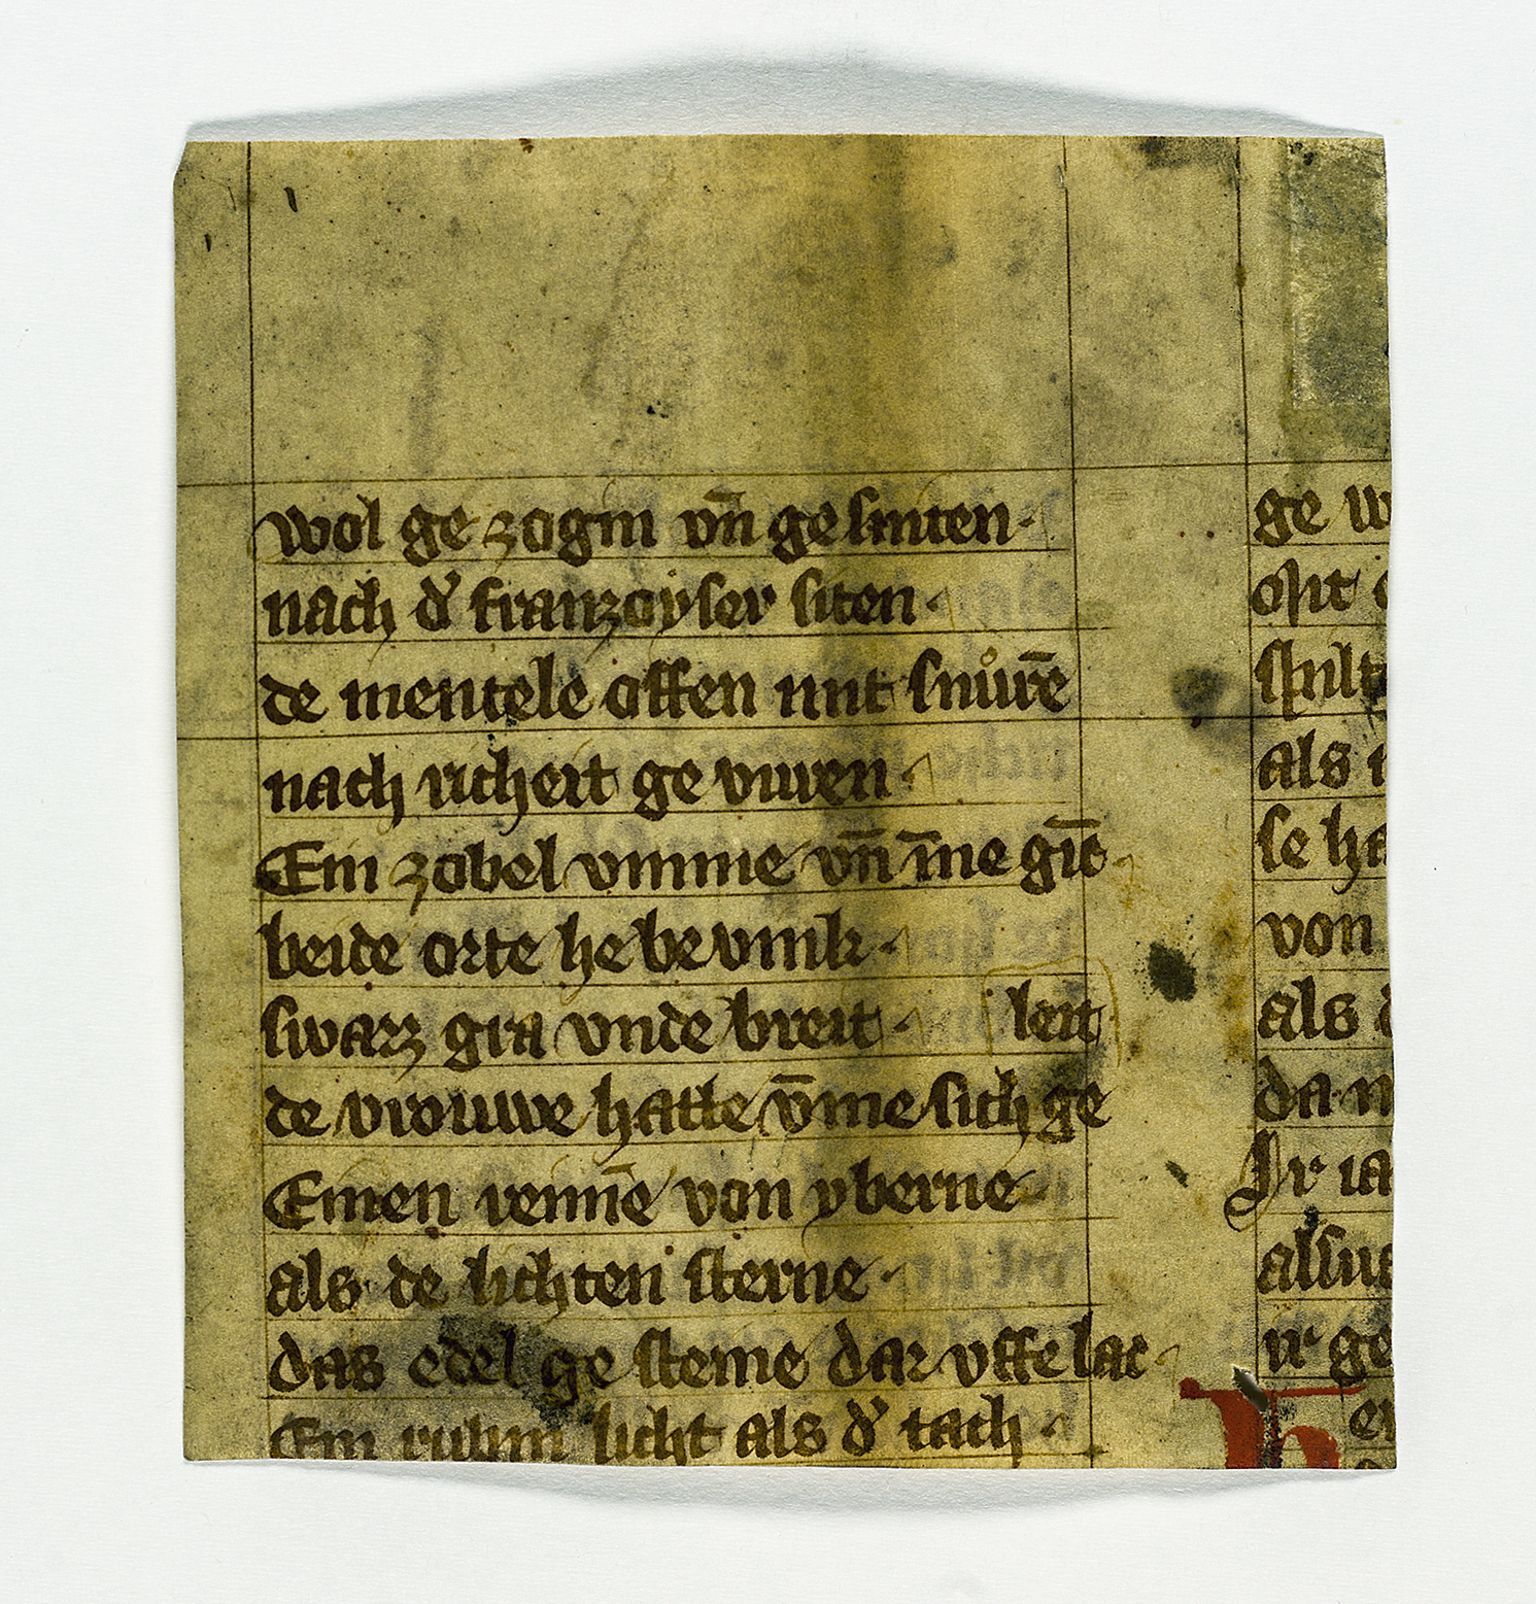 wol ge zogin vn̄ ge sniten·
nach d' franzoyser siten·
de mentele offen mit snůrē
nach richeit ge vuren·
Ein zobel vmme vn̄ m̄me
beide orte he be vink·
swarz gra vnde breit· leit
de vrouwe hatte v̄me sich ge
Einen rennē von yberne·
als de lichten sterne·
das edel ge steine dar vffe lac
Ein rubin licht als d' tach·
ge w
als
se ha
von
als d
da
Ir ia
alsus
ir ge